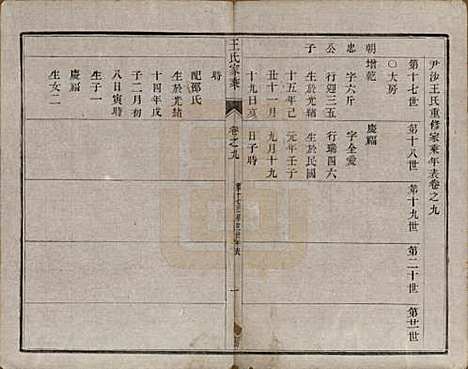 尹沙王氏重修家乘年表卷之九
第十七世
第十八世
第十九世
第二十世
第廿一世
○大房
朝增乾
慶福
忠
字六斤
字全爱
公
行迎三五
行瑞四六
子
生於光緒
生於民國
十五年己
元年壬子
丑十一月
九月十九
十九日亥
日子時
王氏家乘
卷之九
一
時
配邵氏
生於光緒
十四年戊
子二月初
八日寅時
生子一
慶福
生女二